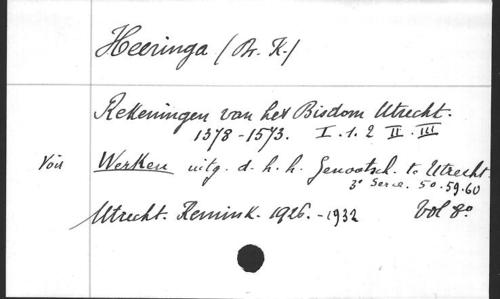 Heeringa (Dr. K.)
Rekeningen van het Bisdom Utrecht.
1378-1573. I.1.2 II.III
Voir Werken uitg. d. h. h. Genootsch. te Utrecht
3e Serie. 50.59.60
Utrecht. Kemink. 1926.-1932 Vol 8o